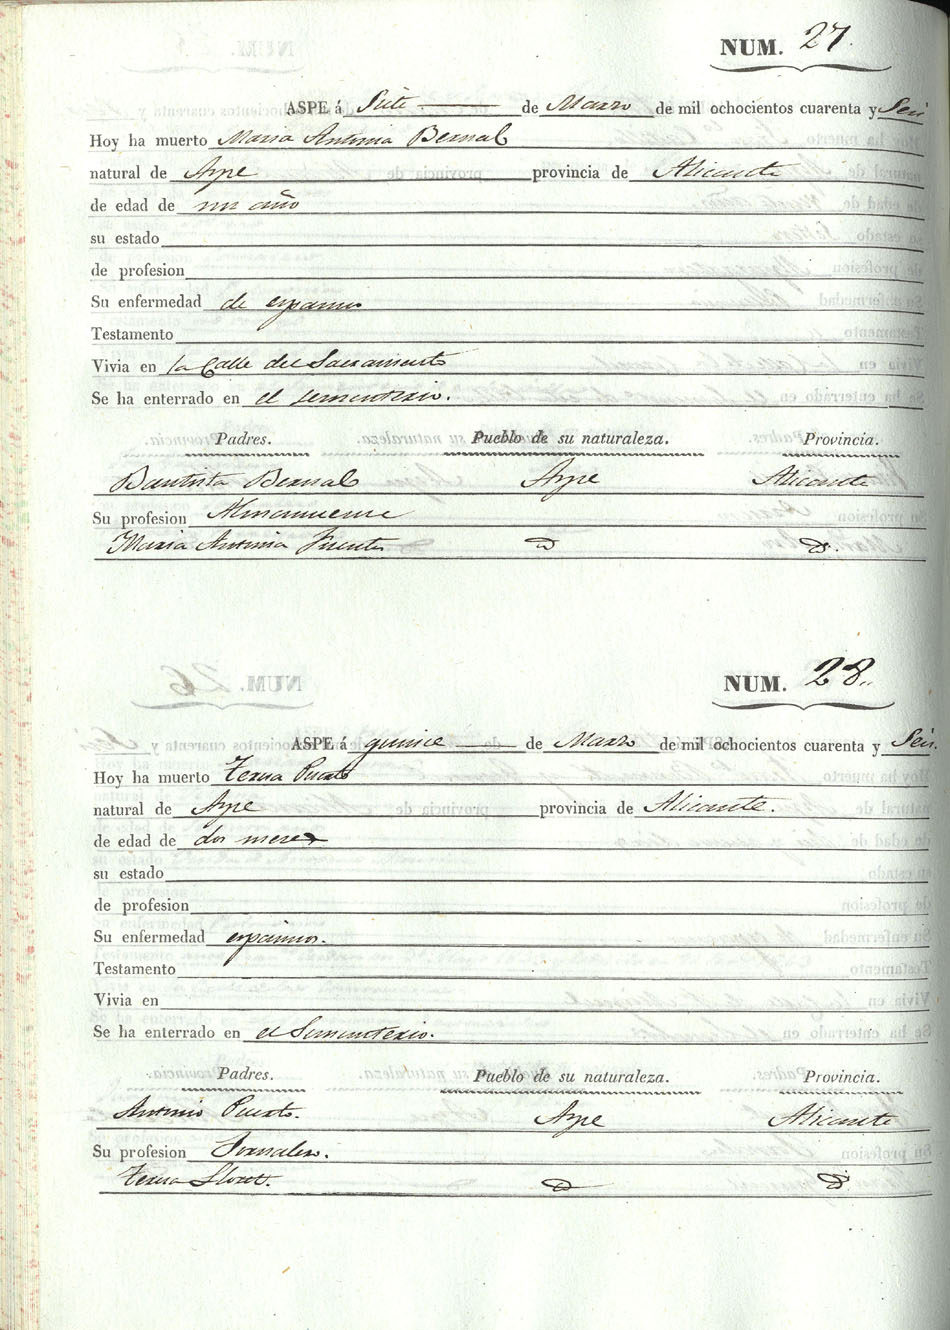 NUM. 27.
ASPE á Siete de Marzo de mil ochocientos cuarenta y Seis
Hoy ha muerto Maria Antonia Bernal
natural de Aspe provincia de Alicante
de edad de un año
su estado
de profesion
Su enfermedad de espasmos
Testamento
Vivia en la Calle del Sacramento
Se ha enterrado en el sementerio.
Padres. Pueblo de su naturaleza. Provincia.
Bautista Bernal Aspe Alicante
Su profesion
Maria Antonia Puerto
NUM. 28.
ASPE á quince de Marzo de mil ochocientos cuarenta y Seis.
Hoy ha muerto Teresa Puerto
natural de Aspe provincia de Alicante.
de edad de dos meses
su estado
de profesion
Su enfermedad espasmos.
Testamento
Vivia en
Se ha enterrado en el Sementerio.
Padres. Pueblo de su naturaleza. Provincia.
Antonio Puerto. Aspe Alicante
Su profesion Jornalero.
Teresa Lloret.